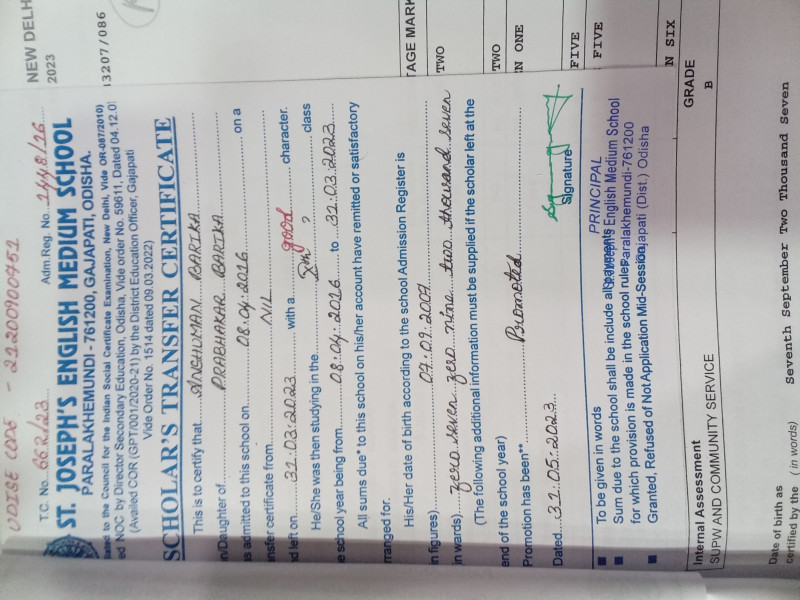 UDISE CODE - 21200900452
T.C. No. 662/23 Adm.Reg. No. 1448/16
ST. JOSEPH'S ENGLISH MEDIUM SCHOOL
PARALAKHEMUNDI - 761200, GAJAPATI, ODISHA.
to the Council for the Indian Social Certificate Examination, New Delhi, Vide OR-087/2010)
ed NOC by Director Secondary Education, Odisha, Vide order No. 59611, Dated 04.12.0
(Availed COR (GPT/001/2020-21) by the District Education Officer, Gajapati
Vide Order No. 1514 dated 09.03.2022)
SCHOLAR'S TRANSFER CERTIFICATE
This is to certify that ANSHUMAN BARIKA
n/Daughter of PRABHAKAR BARIKA
s admitted to this school on 08.04.2016 on a
nsfer certificate from NIL
d left on 31.03.2023 with a good character.
He/She was then studying in the class
e school year being from 08.04.2016 to 31.03.2023
All sums due* to this school on his/her account have remitted or satisfactory
rranged for.
His/Her date of birth according to the school Admission Register is
n figures) 07.09.2007
in wards) zero seven zero nine two thousand seven
(The following additional information must be supplied if the scholar left at the
end of the school year)
Promotion has been** Promoted
Dated 31.05.2023 Signature
PRINCIPAL
English Medium School
Paralakhemundi-761200
Gajapati (Dist.) Odisha
To be given in words
Sum due to the school shall be include all payments
for which provision is made in the school rules
Granted, Refused of Not Application Mid-Session
NEW DELH
2023
13207/086
TAGE MARK
TWO
TWO
N ONE
FIVE
FIVE
N SIX
GRADE
Internal Assessment
SUPW AND COMMUNITY SERVICE B
Date of birth as
certified by the (in words) Seventh September Two Thousand Seven